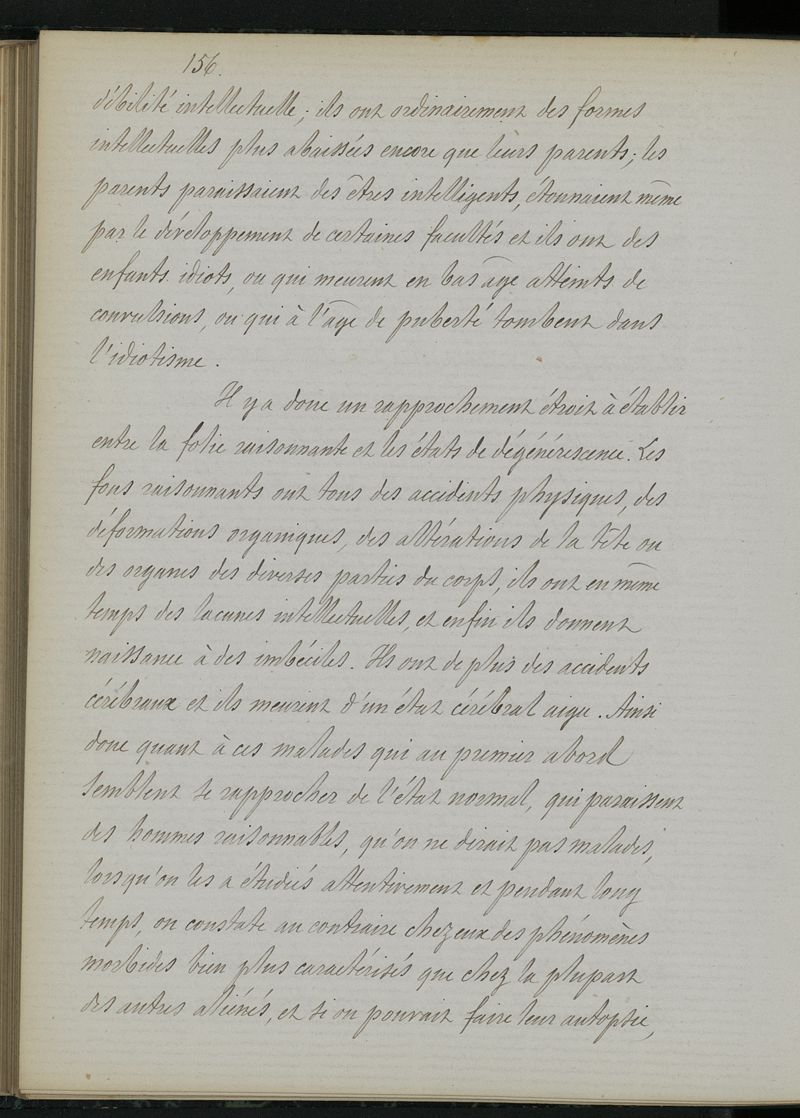 156.
débilité intellectuelle; ils ont ordinairement des formes
intellectuelles plus abaissées encore que leurs parents; les
parents paraissaient des êtres intelligents, étonnaient même
par le développement de certaines facultés et ils ont des
enfants idiots, ou qui meurent en bas âge atteints de
convulsions, ou qui à l'âge de puberté tombent dans
l'idiotisme.
Il y a donc un rapprochement étroit à établir
entre la folie raisonnante et les états de dégénérescence. Les
fous raisonnants ont tous des accidents physiques, des
déformations organiques, des altérations de la tête ou
des organes des diverses parties du corps, ils ont en même
temps des lacunes intellectuelles, et enfin ils donnent
naissance à des imbéciles. Ils ont de plus des accidents
cérébraux et ils meurent d'un état cérébral aigu. Ainsi
donc quant à ces malades qui au premier abord
semblent se rapprocher de l'état normal, qui paraissent
des hommes raisonnables, qu'on ne dirait pas malades,
lorsqu'on les a étudiés attentivement et pendant long
temps, on constate au contraire chez eux des phénomènes
morbides bien plus caractérisés que chez la plupart
des autres aliénés, et si on pouvait faire leur autopsie,